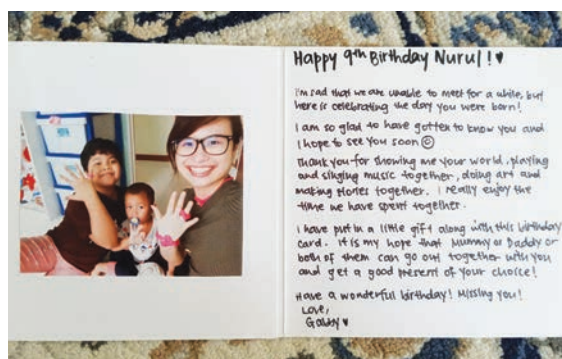 Happy 9th Birthday Nurul! ♥
I'm sad that we are unable to meet for a while, but
here is celebrating the day you were born!
I am so glad to have gotten to know you and
I hope to see you soon ☺
Thank you for showing me your world, playing
and singing music together, doing art and
making stories together. I really enjoy the
time we have spent together.
I have put in a little gift along with this birthday
card. It is my hope that Mummy or Daddy or
both of them can go out together with you
and get a good present of your choice!
Have a wonderful birthday! Missing you!
Love,
Gabby ♥